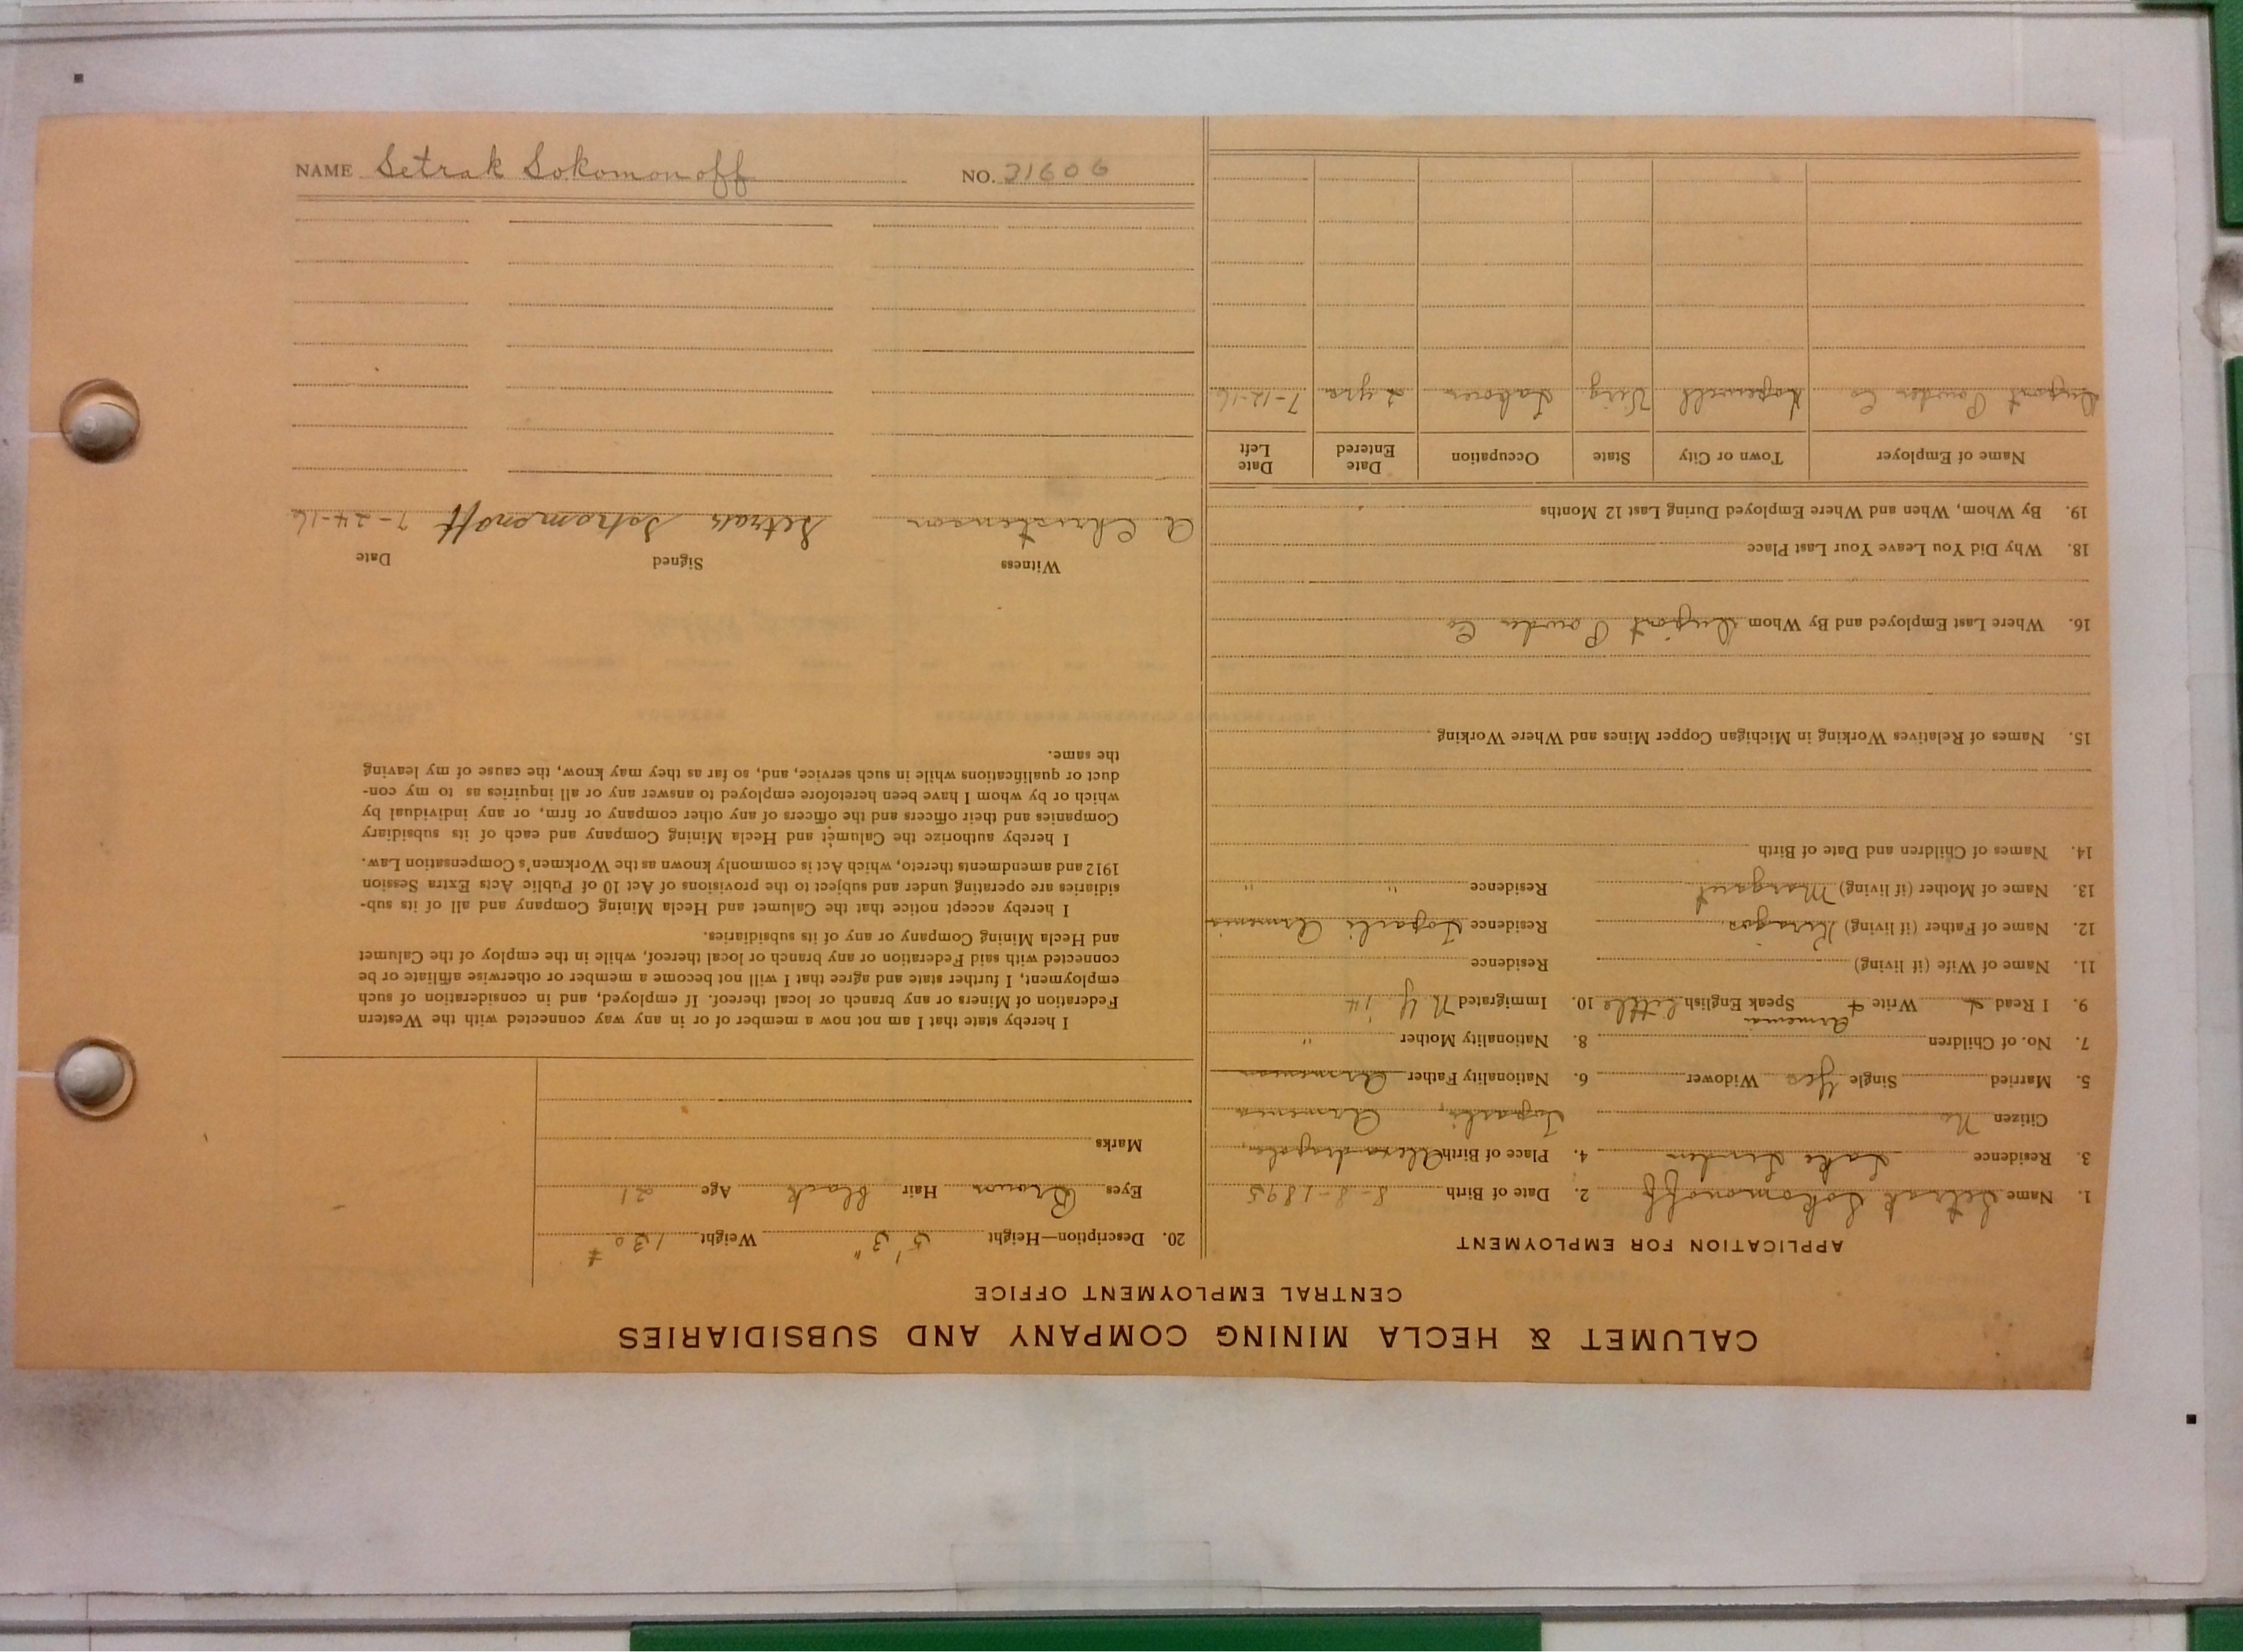 NAME Setrak Sokomonoff NO. 31606
CALUMET & HECLA MINING COMPANY AND SUBSIDIARIES
CENTRAL EMPLOYMENT OFFICE
APPLICATION FOR EMPLOYMENT
1. Name Setrak Sokomonoff 2. Date of Birth 8-8-1895
3. Residence Lake Linden 4. Place of Birth
Citizen No Armenia
5. Married Single Yes Widower 6. Nationality Father Armenian
7. No. of Children 8. Nationality Mother "
Armenia
9. I Read & Write & Speak English little 10. Immigrated N Y 14
11. Name of Wife (if living) Residence
12. Name of Father (if living) Residence Armenia
13. Name of Mother (if living) Margaret Residence " "
14. Names of Children and Date of Birth
15. Names of Relatives Working in Michigan Copper Mines and Where Working
16. Where Last Employed and By Whom Dupont Powder Co
18. Why Did You Leave Your Last Place
19. By Whom, When and Where Employed During Last 12 Months
Name of Employer Town or City State Occupation Date Entered Date Left
Dupont Powder Co Hopewell Virg Laborer 2 yrs 7-12-16
20. Description—Height 5' 3" Weight 130 #
Eyes Brown Hair black Age 21
Marks
I hereby state that I am not now a member of or in any way connected with the Western
Federation of Miners or any branch or local thereof. If employed, and in consideration of such
employment, I further state and agree that I will not become a member or otherwise affiliate or be
connected with said Federation or any branch or local thereof, while in the employ of the Calumet
and Hecla Mining Company or any of its subsidiaries.
I hereby accept notice that the Calumet and Hecla Mining Company and all of its sub-
sidiaries are operating under and subject to the provisions of Act 10 of Public Acts Extra Session
1912 and amendments thereto, which Act is commonly known as the Workmen's Compensation Law.
I hereby authorize the Calumet and Hecla Mining Company and each of its subsidiary
Companies and their officers and the officers of any other company or firm, or any individual by
which or by whom I have been heretofore employed to answer any or all inquiries as to my con-
duct or qualifications while in such service, and, so far as they may know, the cause of my leaving
the same.
Witness Signed Date
A. Christenson Setrak 7-24-16